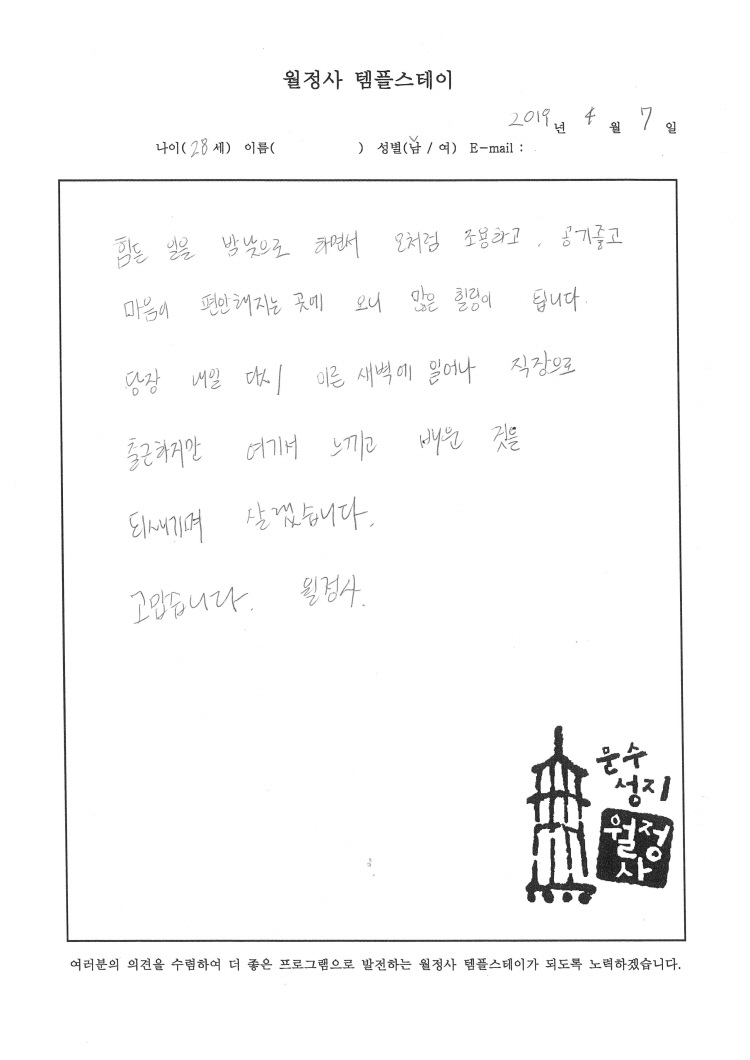 월정사 템플스테이
2019년 4월 7일
나이(28세) 이름( ) 성별(남 / 여) E-mail :
힘든 일을 밤낮으로 하면서 모처럼 조용하고, 공기좋고
마음이 편안해지는 곳에 오니 많은 힐링이 됩니다.
당장 내일 다시 이른 새벽에 일어나 직장으로
출근하지만 여기서 느끼고 배운 것을
되새기며 살겠습니다.
고맙습니다. 월정사.
문수
성지
월정
사
여러분의 의견을 수렴하여 더 좋은 프로그램으로 발전하는 월정사 템플스테이가 되도록 노력하겠습니다.